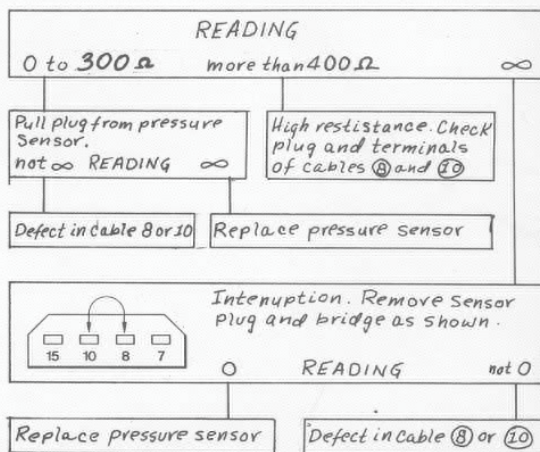 READING
0 to 300 Ω more than 400 Ω ∞
Pull plug from pressure
Sensor.
not ∞ READING ∞
High restistance. Check
plug and terminals
of cables ⑧ and ⑩
Defect in Cable 8 or 10
Replace pressure sensor
Intenuption. Remove Sensor
plug and bridge as shown.
15 10 8 7
0 READING not 0
Replace pressure sensor
Defect in Cable ⑧ or ⑩